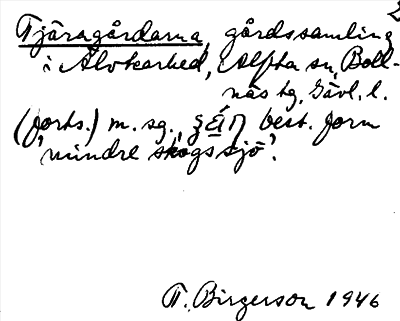 2
Tjäragårdarna, gårdssamling
i Älvkarhed, Alfta sn, Boll-
näs tg, Gävl. l.
(forts.) m. sg., best. form
'mindre skogssjö'.
T. Birgerson 1946